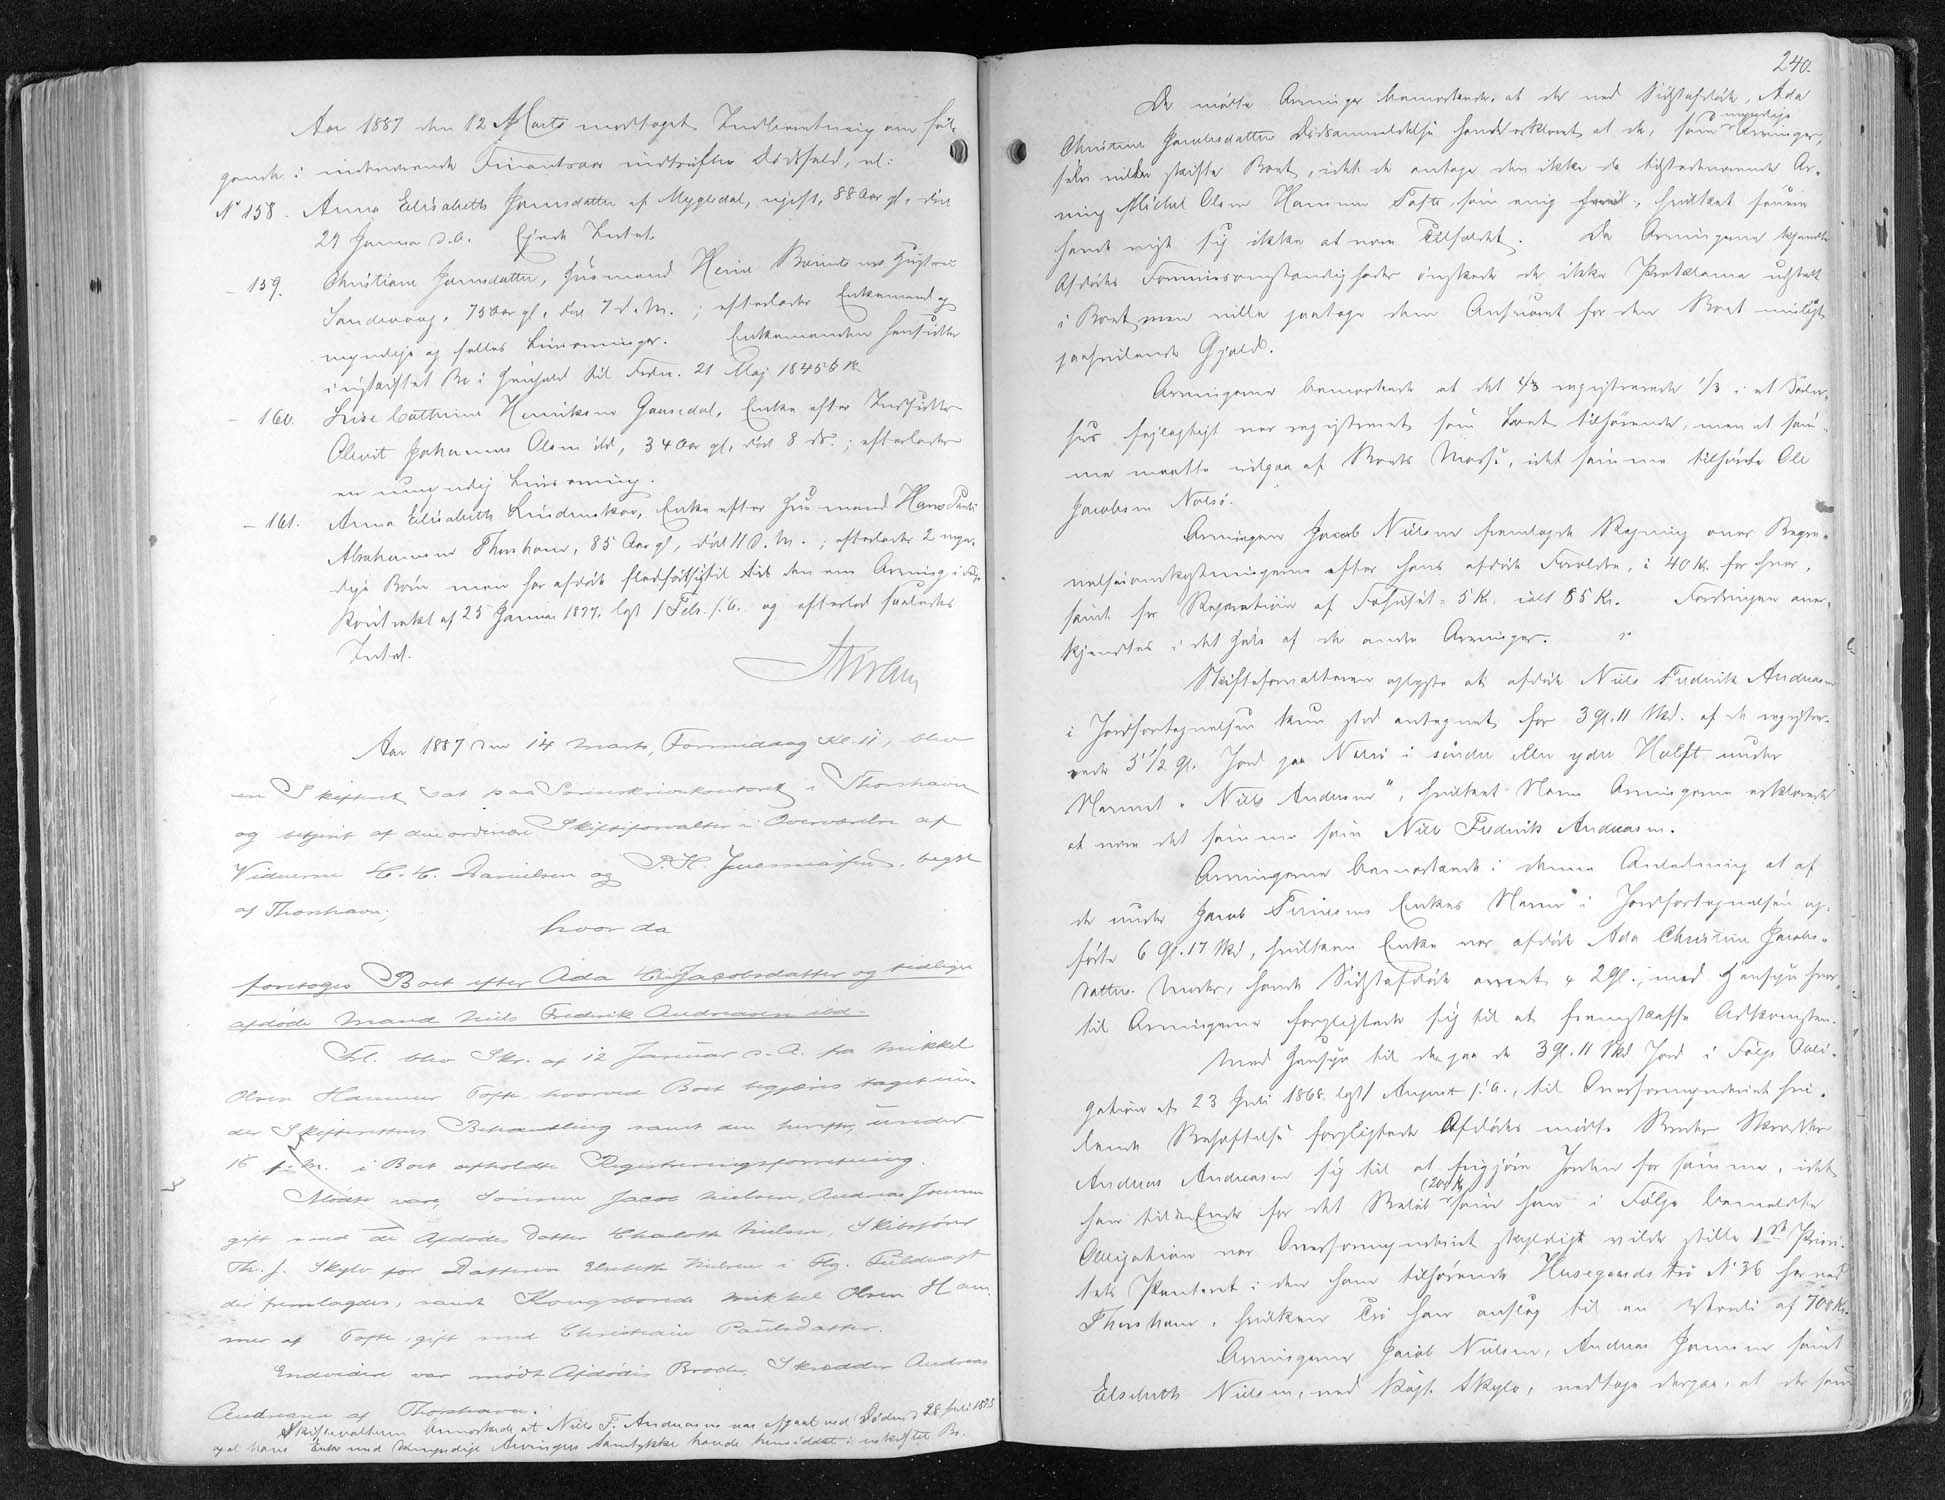 Aar 1887 den 12 Marts modtaget Indberetning om føl-
gende i indeværende Finantsaar indtrufne Dødsfald, nl:
No 158. Anna Elisabeth Joensdatter af Mygledal, ugift, 88 Aar gl, død
29 Januar d. A. Ejede Intet.
- 159. Christiane Joensdatter, Husmand Heine Hustru
Sandevaag, 75 Aar gl, død 7 d. M.; efterlader Enkemand og
myndige og fælles Livsarvinger. Enkemanden hensidder
i uskiftet Bo i Henhold til Frdn. 21 Maj 1845
- 160. Lise Cathrine Henriksen Gaasedal, Enke efter
Olevit Johannes Olsen ibd, 34 Aar gl, død 8 ds.; efterlader
en umyndig Livsarving.
- 161. Anna Elisabeth Lindenskov, Enke efter Husmand Hans Pauli
Abrahamsen Thorshavn, 85 Aar gl, død 11 d. M.; efterlader 2 myn-
dige Børn men har afdøde til den ene Arving i Følge
Kontrakt af 25 Januar 1877. lgst 1 Feb. s. A. og efterlod saaledes
Intet.
Aar 1887 den 14 Marts, Formiddag Kl. 11, blev
en Skifteret sat paa Sorenskriverkontoret i Thorshavn
og betjent af den ordinære Skifteforvalter i Overværelse af
Vidnerne H. C. Danielsen og begge
af Thorshavn;
hvor da
foretoges Boet efter Ada Chr. Jacobsdatter og tidligere
afdøde Mand Niels Frederik Andreasen ibd.
Frl. blev Skr. af 12 Januar d. A. fra Mikkel
Olsen Hammer Tofte, hvorved Boet begjæres taget un-
der Skifterettens Behandling samt den herefter, under
16 f. M. i Boet afholdte Registreringsforretning.
Mødte vare, Sønnen Jacob Nielsen, Andreas Joensen
gift med de Afdødes Datter Charlotte Nielsen, Skibsfører
Th. J. Skylv for Datteren Elsebeth Nielsen i Flg. Fuldmagt
der fremlagdes, samt Kongsbonde Mikkel Olsen Ham-
mer af Tofte, gift med Christiane Paulsdatter.
Endvidere var mødt Afdødes Broder, Skrædder Andreas
Andreasen af Thorshavn.
Skifteforvalteren bemærkede, at Niels F. Andreasen var afgaaet ved Døden 28 Juli 1875
og at hans Enke med Umyndige Arvingers Samtykke havde hensiddet i uskiftet Bo.
240.
De mødte Arvinger bemærkede, at de ved Sidstafdøde, Ada
myndige
Christine Jacobsdatters Dødsanmeldelse havde erklæret at de, som Arvinger,
selv vilde skifte Boet, idet de antage den ikke da tilstedeværende Ar-
ving Mickel Olsen Hammer Tofte, som enig heri, hvilket senere
havde vist sig ikke at være Tilfældet. Da Arvingerne kjendte
Afdødes Formuesomstændigheder ønskede de ikke Proklama udstedt
i Boet men ville paatage dem Ansvaret for den Boet muligt
paahvilende Gjæld.
Arvingerne bemærkede at det registrerede 1/3 i et
hus fejlagtigt var registreret som Boet tilhørende, men at sam-
me maatte udgaa af Boets Masse, idet samme tilhørte Ole
Jacobsen Nolsø.
Arvingen Jacob Nielsen fremlagde Regning over Begra-
velsesomkostningerne efter hans afdøde Forældre, i 40 Kr. for hver,
samt for Reparation af = 5 Kr. ialt 85 Kr. Fordringen aner-
kjendtes i det Hele af de andre Arvinger.
Skifteforvalteren oplyste at afdøde Niels Frederik Andreasen
i Jordfortegnelsen kun stod antegnet for 3 Gl. 11 Skd. af de registre-
rede 5 1/2 Gl. Jord paa Nolsø i søndre eller ydre Hælft under
Navnet "Niels Andersen", hvilket Navn Arvingerne erklærede
at være det samme som Niels Frederik Andreasen.
Arvingerne bemærkede i denne Anledning at af
de under Jacob Enkes Navn i Jordfortegnelsen op-
førte 6 Gl. 17 Skd, hvilken Enke var afdøde Ada Christine Jacobs-
datters Moder, havde Sidstafdøde arvet 2 Gl., med Hensyn hvor-
til Arvingerne forpligtede sig til at fremskaffe Adkomsten.
Med Hensyn til den paa de 3 Gl. 11 Skd Jord i Følge Obli-
gation af 23 Juli 1868 lgst 1 August s. A., til Overformynderiet hvi-
lende Behæftelse forpligtede Afdødes mødte Broder Skrædder
Andreas Andreasen sig til at frigjøre Jorden for samme, idet
(200 Kr)
han til den Ende for det Beløb som han i Følge bemeldte
Obligation var Overformynderiet skyldigt vilde stille 1ste Priori-
tets Panteret i den ham tilhørende Husegrunds No 36 her ved
Thorshavn, hvilken han anslog til en Værdi af 700 Kr.
Arvingerne Jacob Nielsen, Andreas Joensen samt
Elsebeth Nielsen, ved Skylv, vedtoge dernæst, at de som